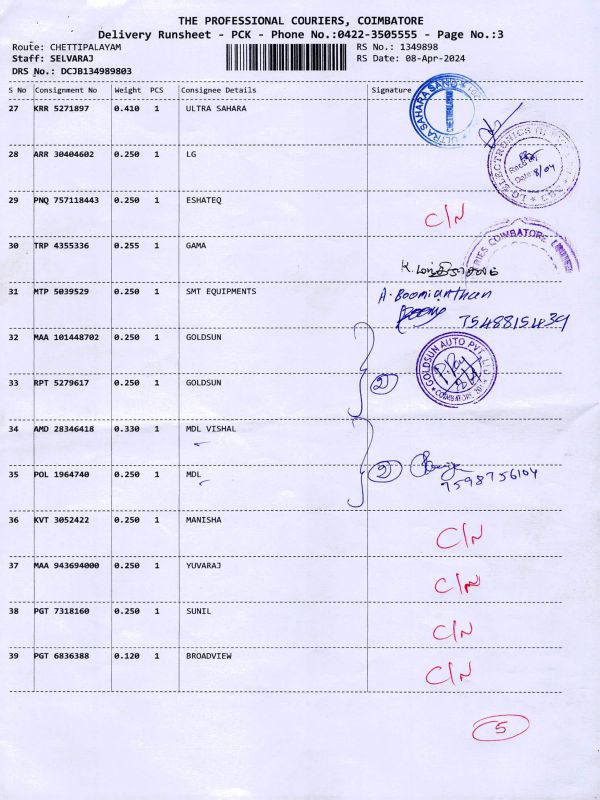 THE PROFESSIONAL COURIERS, COIMBATORE
Delivery Runsheet - PCK - Phone No.:0422-3505555 - Page No.:3
Route: CHETTIPALAYAM RS No.: 1349898
Staff: SELVARAJ RS Date: 08-Apr-2024
DRS No.: DCJB134989803
S No Consignment No Weight PCS Consignee Details Signature
27 KRR 5271897 0.410 1 ULTRA SAHARA
ULTRA SAHARA
28 ARR 30404602 0.250 1 LG
LG ELECTRONICS
Date 8/04
29 PNQ 757118443 0.250 1 ESHATEQ C/N
30 TRP 4355336 0.255 1 GAMA
COIMBATORE
31 MTP 5039529 0.250 1 SMT EQUIPMENTS A. Boomianthan
7548815439
32 MAA 101448702 0.250 1 GOLDSUN
GOLDSUN AUTO PVT. LTD
COIMBATORE
33 RPT 5279617 0.250 1 GOLDSUN 2
34 AMD 28346418 0.330 1 MDL VISHAL
35 POL 1964740 0.250 1 MDL 2
7598756104
36 KVT 3052422 0.250 1 MANISHA C/N
37 MAA 943694000 0.250 1 YUVARAJ C/N
38 PGT 7318160 0.250 1 SUNIL C/N
39 PGT 6836388 0.120 1 BROADVIEW C/N
5